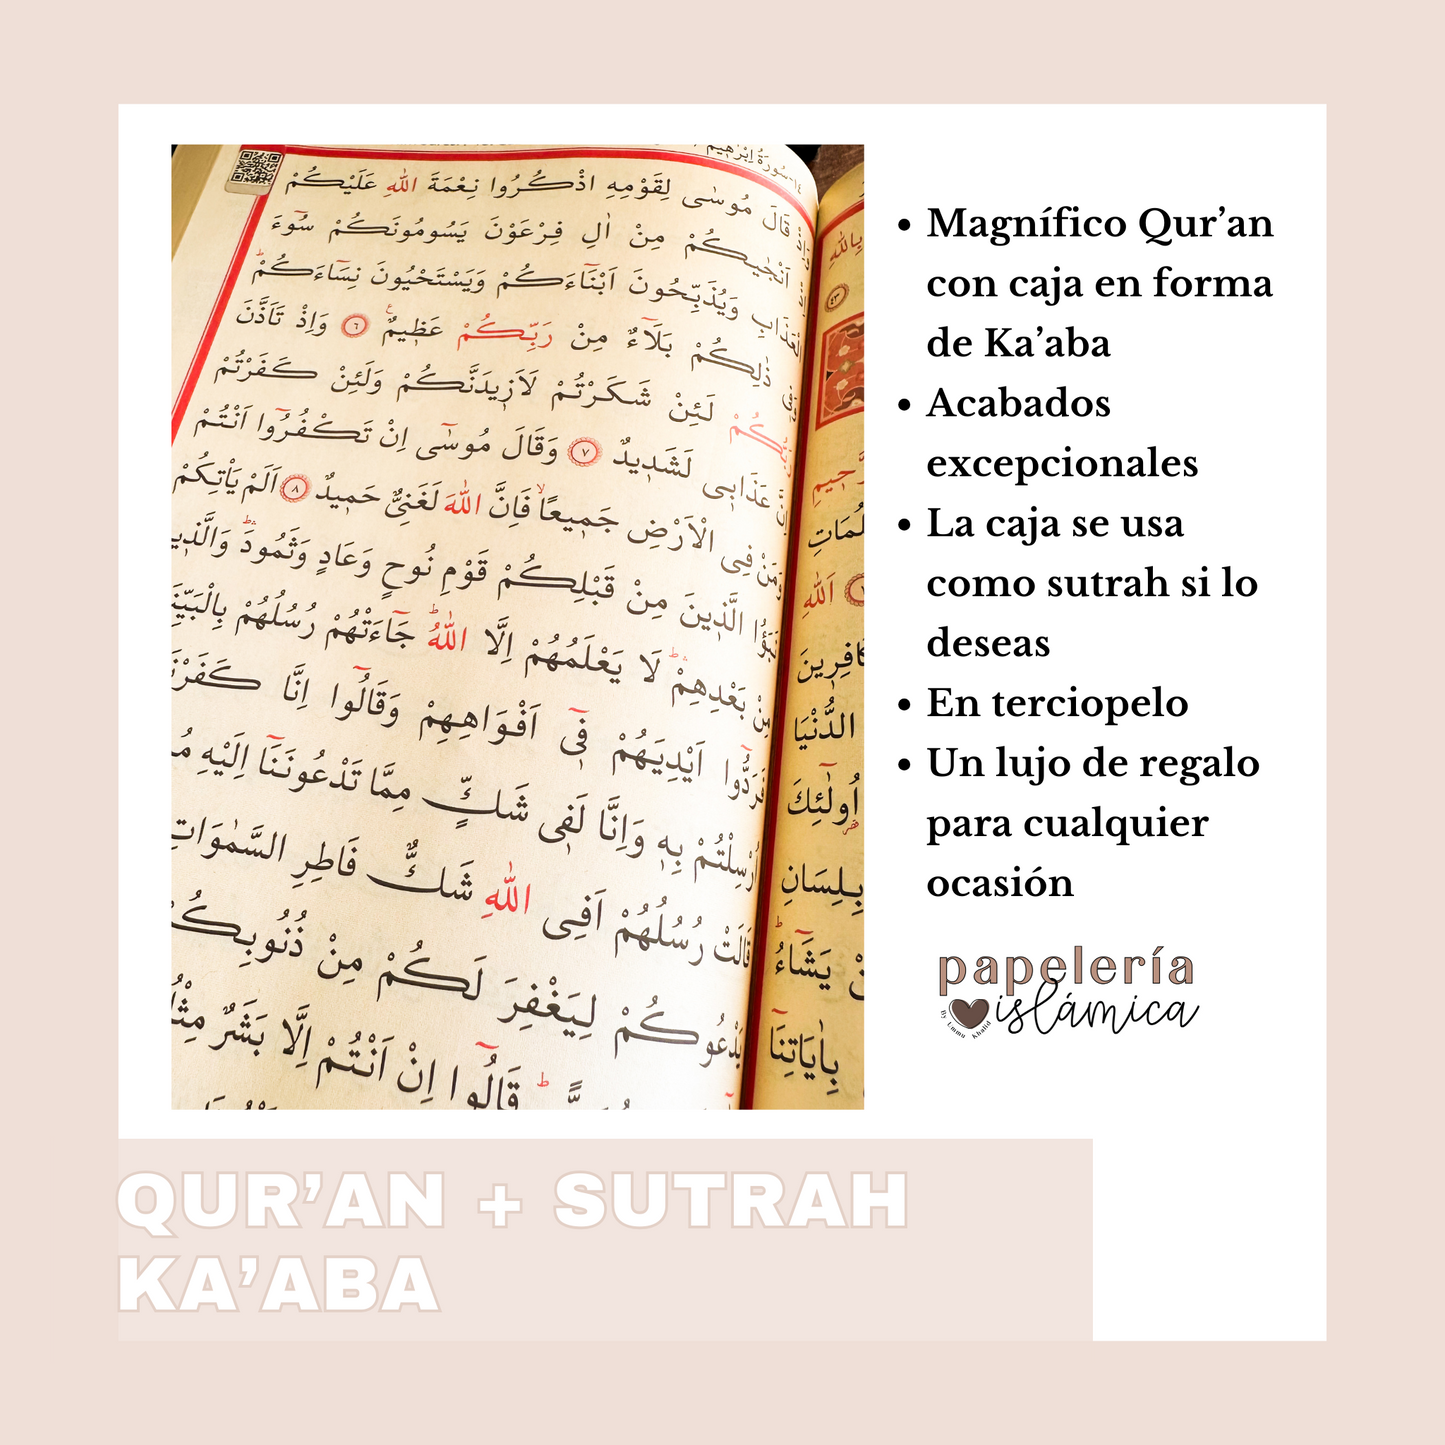 ١٤-سُورَةُ اِبْرٰه۪يمَ
قَالَ مُوسٰى لِقَوْمِهِ اذْكُرُوا نِعْمَةَ اللّٰهِ عَلَيْكُمْ
اَنْجٰيكُمْ مِنْ اٰلِ فِرْعَوْنَ يَسُومُونَكُمْ سُٓوءَ
الْعَذَابِ وَيُذَبِّحُونَ اَبْنَٓاءَكُمْ وَيَسْتَحْيُونَ نِسَٓاءَكُمْۜ
ذٰلِكُمْ بَلَٓاءٌ مِنْ رَبِّكُمْ عَظ۪يمٌ۟ ٦ وَاِذْ تَاَذَّنَ
لَئِنْ شَكَرْتُمْ لَاَز۪يدَنَّكُمْ وَلَئِنْ كَفَرْتُمْ
اِنَّ عَذَاب۪ي لَشَد۪يدٌ ٧ وَقَالَ مُوسٰٓى اِنْ تَكْفُرُٓوا اَنْتُمْ
وَمَنْ فِي الْاَرْضِ جَم۪يعًاۙ فَاِنَّ اللّٰهَ لَغَنِيٌّ حَم۪يدٌ ٨ اَلَمْ يَأْتِكُمْ
نَبَؤُا الَّذ۪ينَ مِنْ قَبْلِكُمْ قَوْمِ نُوحٍ وَعَادٍ وَثَمُودَۜۛ وَالَّذ۪ينَ
مِنْ بَعْدِهِمْۜۛ لَا يَعْلَمُهُمْ اِلَّا اللّٰهُۜ جَٓاءَتْهُمْ رُسُلُهُمْ بِالْبَيِّنَ
فَرَدُّٓوا اَيْدِيَهُمْ ف۪ٓي اَفْوَاهِهِمْ وَقَالُٓوا اِنَّا كَفَرْنَ
اُرْسِلْتُمْ بِه۪ وَاِنَّا لَف۪ي شَكٍّ مِمَّا تَدْعُونَنَٓا اِلَيْهِ مُ
قَالَتْ رُسُلُهُمْ اَفِي اللّٰهِ شَكٌّ فَاطِرِ السَّمٰوَاتِ
يَدْعُوكُمْ لِيَغْفِرَ لَكُمْ مِنْ ذُنُوبِكُ
قَالُٓوا اِنْ اَنْتُمْ اِلَّا بَشَرٌ مِثْلُ
بِاللّٰهِ
٤٣
اَللّٰهِ
الدُّنْيَا
اُو۬لٰٓئِكَ
بِلِسَانِ
يَشَٓاءُ
بِاٰيَاتِنَٓا
• Magnífico Qur’an
con caja en forma
de Ka’aba
• Acabados
excepcionales
• La caja se usa
como sutrah si lo
deseas
• En terciopelo
• Un lujo de regalo
para cualquier
ocasión
papelería
islámica
By Ummu Khalid
QUR’AN + SUTRAH
KA’ABA